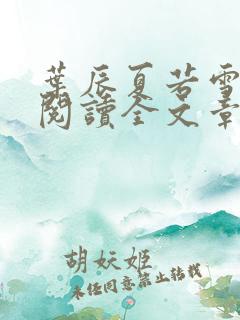 葉辰夏若雪
閱讀全文章
胡妖姬
未經同意禁止轉載